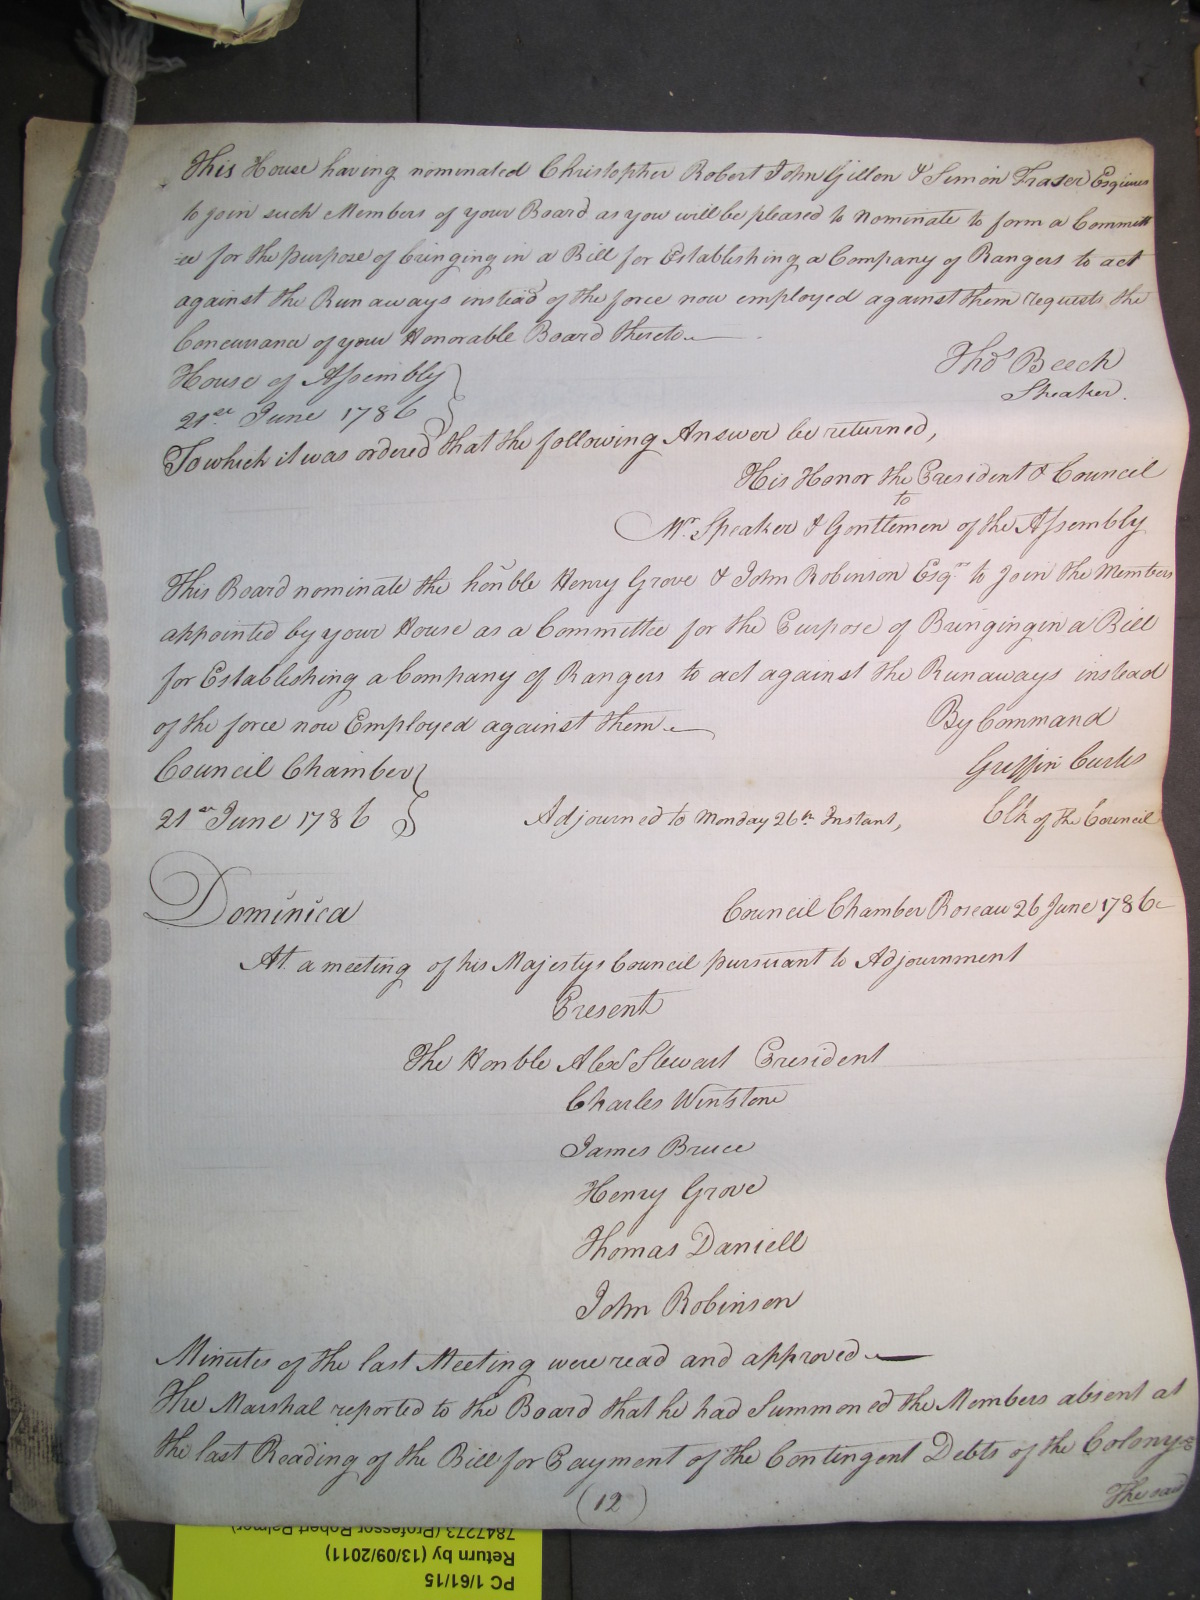 This House having nominated Christopher Robert John Gillon & Simon Fraser Esquires
to join such Members of your Board as you will be pleased to nominate to form a Committ
-ee for the purpose of bringing in a Bill for Establishing a Company of Rangers to act
against the Runaways instead of the force now employed against them requests the
Concurrance of your Honorable Board thereto
Thos Beech
House of Assembly
Speaker.
21st June 1786
To which it was ordered that the following Answer be returned,
His Honor the President & Council
to
Mr. Speaker & Gentlemen of the Assembly
This Board nominate the honble Henry Grove & John Robinson Esqrs to Join the Members
appointed by your House as a Committee for the Purpose of Bringing in a Bill
for Establishing a Company of Rangers to act against the Runaways instead
of the force now Employed against them.
By Command
Council Chamber
Griffin Curtis
21st June 1786
Adjourned to Monday 26th Instant,
Clk of the Council
Dominica
Council Chamber Roseau 26 June 1786
At a meeting of his Majestys Council pursuant to Adjournment
Present
The Honble Alexr Stewart President
Charles Winstone
James Bruce
Henry Grove
Thomas Daniell
John Robinson
Minutes of the last Meeting were read and approved
The Marshal reported to the Board that he had Summoned the Members absent at
the last Reading of the Bill for Payment of the Contingent Debts of the Colony
(12)
The said
PC 1/61/15
Return by (13/09/2011)
7847273 (Professor Robert Palmer)